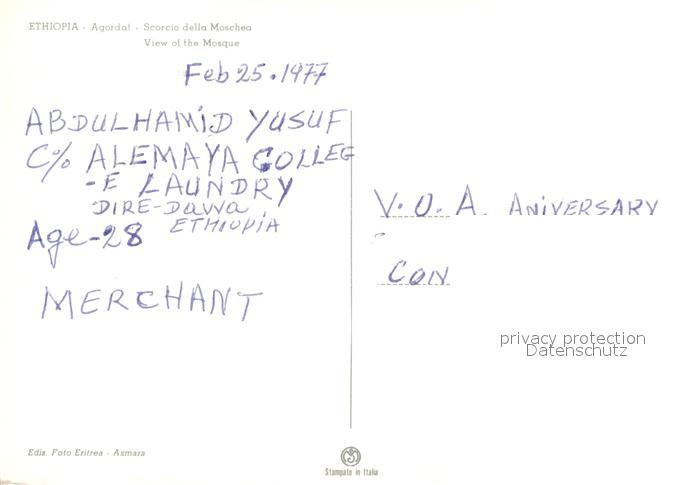 ETHIOPIA - Agordat - Scorcio della Moschea
View of the Mosque
Feb 25.1977
ABDULHAMiD YUSUF
C% ALEMAYA COLLEG
-E LAUNDRY
DIRE-DAWA
ETHIOPIA
Age-28
MERCHANT
V.O.A. ANiVERSARY
CON
privacy protection
Datenschutz
Ediz. Foto Eritrea - Asmara
Stampato in Italia